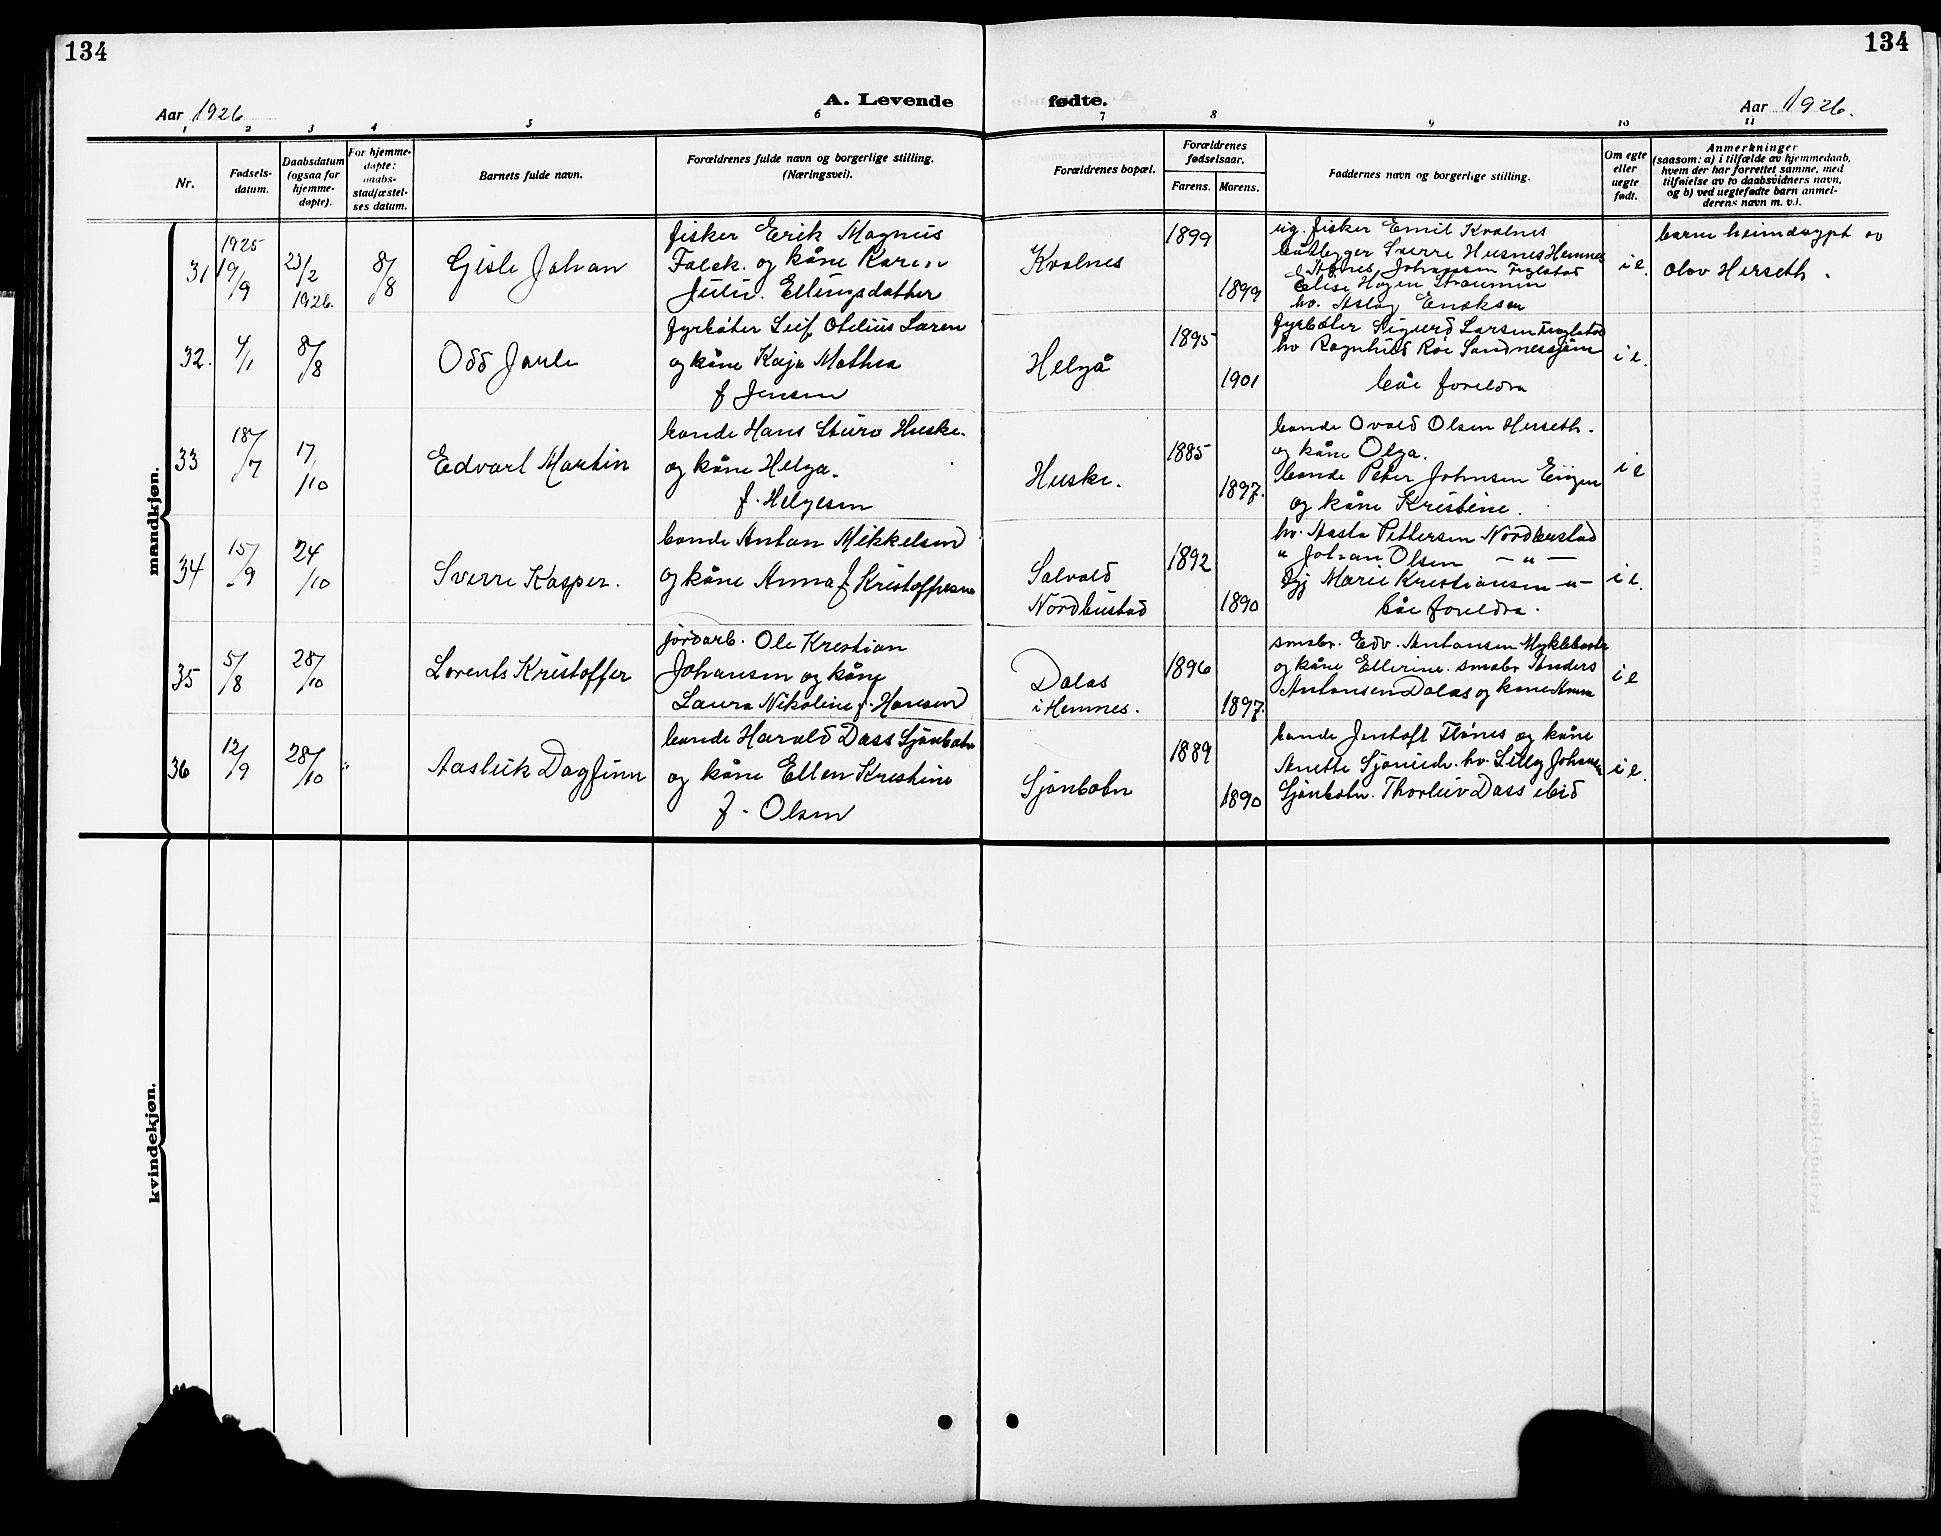 134
134
A. Levende fødte.
Aar 1926
Aar 1926.
1 2 3 4 5 6 7 8 9 10 11
Nr.
Fødsels-
datum.
Daabsdatum
(ogsaa for
hjemme-
døpte).
For hjemme-
døpte:
daabs-
stadfæstel-
ses datum.
Barnets fulde navn.
Forældrenes fulde navn og borgerlige stilling.
(Næringsvei).
Forældrenes bopæl.
Forældrenes
fødselsaar.
Farens. Morens.
Faddernes navn og borgerlige stilling.
Om egte
eller
uegte
født.
Anmerkninger
(saasom: a) i tilfælde av hjemmedaab,
hvem der har forrettet samme, med
tilføielse av to daabsvidners navn,
og b) ved uegtefødte barn anmel-
derens navn m. v.).
mandkjøn.
31
1925
19/9
23/2
1926.
8/8
Gisle Johan
fisker Erik Magnus
Falck. og kåne Karen
Julie. Ellingsdatter
Kvalnes
1899
1899
ug. fisker Emil Kvalnes
båtbygger Sverre Husnes Hemnes
Agnes Johansen
Elise Hagen Straumen
hv. Aslag Eriksen
i e.
barne heimdøypt av
Olav Herseth.
32.
4/1
8/8
Odd Jarle
fyrbøter Leif Otelius Larsen
og kåne Kaja Mathea
f Jensen
Helgå
1895
1901
fyrbøter Sigurd Larsen
hv Ragnhild Røe Sandnessjøen
båe foreldra
i e.
33
18/7
17/10
Edvart Martin
bonde Hans Sture Huske.
og kåne Helga.
f. Helgesen
Huske.
1885
1897.
bonde Ovald Olsen Herseth.
og kåne Olga.
bonde Peter Johnsen
og kåne Kristine.
i e
34
15/9
24/10
Sverre Kasper.
bonde Anton Mikkelsen
og kåne Anna f Kristoffersen
Solvold
Nordbustad
1892
1890
hv. Aasta Pettersen Nordbustad
" Johan Olsen — " —
Marie Kristiansen —"—
båe foreldra.
i e.
35
5/8
28/10
Lorents Kristoffer
jordarb. Ole Krestian
Johansen og kåne
Laura Nikoline f. Hansen
Dalas
i Hemnes.
1896
1897.
småbr. Edv. Antonsen
og kåne Ellerine. småbr Anders
Antonsen Dalas og kåne Anna
i e
36
12/9
28/10
Aasleik Dagfinn
bonde Harald Dass Sjonbotn
og kåne Ellen Krestine
f. Olsen
Sjonbotn
1889
1890
bonde Jentoft Flånes og kåne
Anette hv. Lilly Johansen
Sjonbotn. Thorleiv Dass ibid
i e.
kvindekjøn.